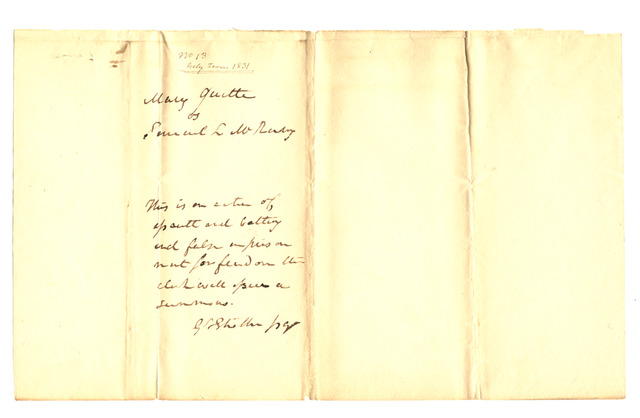 No 13
July Term 1831
Mary
vs
Samuel L Mc
This is an action of
assault and battery
and false imprison
ment for freedom the
clerk will issue a
summons.